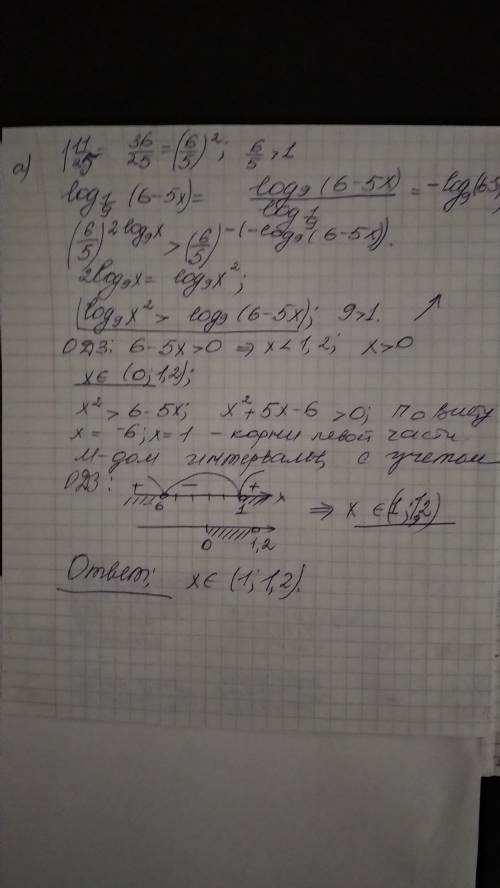 а) 1 11/25 = 36/25 = (6/5)²; 6/5 > 1
log_{1/9} (6-5x) = log₉ (6-5x) / log 1/9 = -log₉(6-5x)
(6/5)^{2log₉x} > (6/5)^{-(-log₉(6-5x))}.
2log₉x = log₉x²;
log₉x² > log₉(6-5x); 9>1. ↗
ОДЗ: 6-5x>0 ⇒ x<1,2; x>0
x∈(0;1,2);
x²>6-5x; x²+5x-6>0; По Виету
x=-6; x=1 - корни левой части
М-дом интервалы, с учетом
ОДЗ: + - + x
-6 1 ⇒ x∈(1;1,2)
0 1,2
Ответ: x∈(1;1,2).